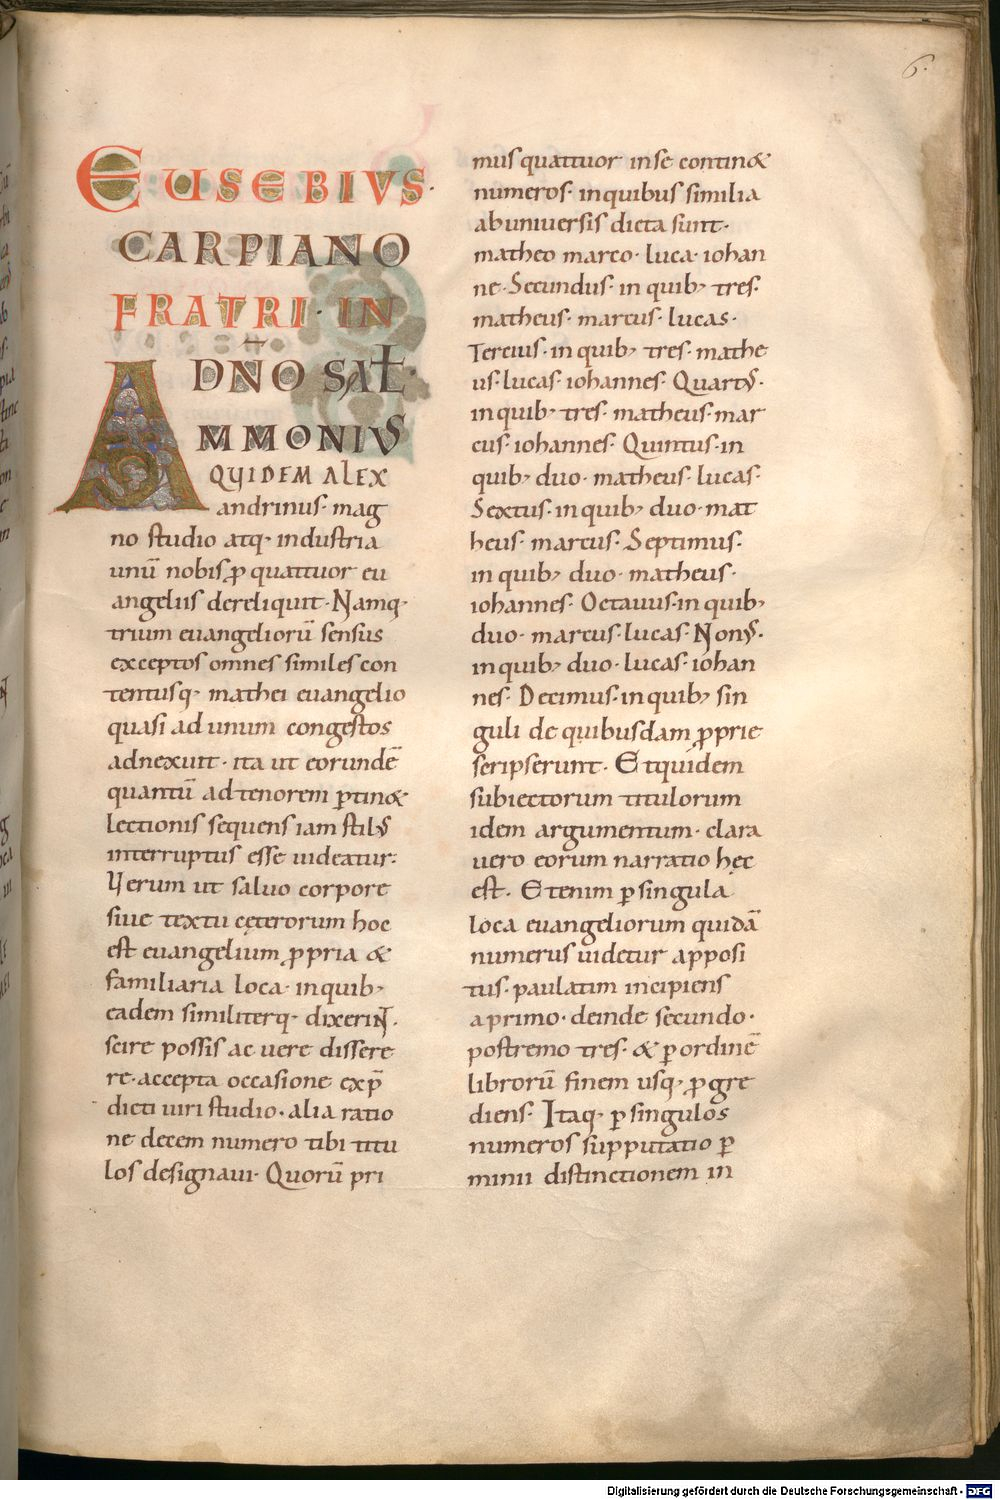 6.
EUSEBIVS·
CARPIANO
FRATRI · IN
DNO SAŁ·
AMMONIVS
QUIDEM ALEX
andrinus· mag
no studio atq· industria
unū nobis ꝓ quattuor eu
angeliis dereliquit· Namq·
trium euangeliorū sensus
exceptos omnes similes con
tentusq· mathei euangelio
quasi ad unum congestos
adnexuit· ita ut eorundē
quantū ad tenorem ꝑtin&
lectionis sequens iam stilꝰ
interruptus esse uideatur·
Verum ut saluo corpore
siue textu cęterorum hoc
est euangelium ꝓpria &
familiaria loca· in quib;
eadem similiterq· dixeriɴᴛ·
scire possis ac uere dissere
re· accepta occasione ex p̄
dicti uiri studio· alia ratio
ne decem numero tibi titu
los designaui· Quorū pri
mus quattuor in se contin&
numeros· in quibus similia
ab uniuersis dicta sunt·
matheo marco· luca· iohan
ne· Secundus· in quib; tres·
matheus· marcus· lucas·
Tercius· in quib; tres· mathe
us· lucas· iohannes· Quartꝰ·
in quib; tres· matheus· mar
cus· iohannes· Quintus· in
quib; duo· matheus· lucas·
Sextus· in quib; duo· mat
heus· marcus· Septimus·
in quib; duo· matheus·
iohannes· Octauus· in quib;
duo· marcus· lucas· Nonꝰ·
in quib; duo· lucas· iohan
nes· Decimus· in quib; sin
guli de quibusdam ꝓprie
scripserunt· Et quidem
subiectorum titulorum
idem argumentum· clara
uero eorum narratio hec
est· Etenim ꝑ singula
loca euangeliorum quidā
numerus uidetur apposi
tus· paulatim incipiens
a primo· deinde secundo·
postremo tres· & ꝑ ordinē
librorū finem usq; ꝓgre
diens· Itaq; ꝑ singulos
numeros supputatio ꝑ
minii distinctionem in
Digitalisierung gefördert durch die Deutsche Forschungsgemeinschaft - DFG